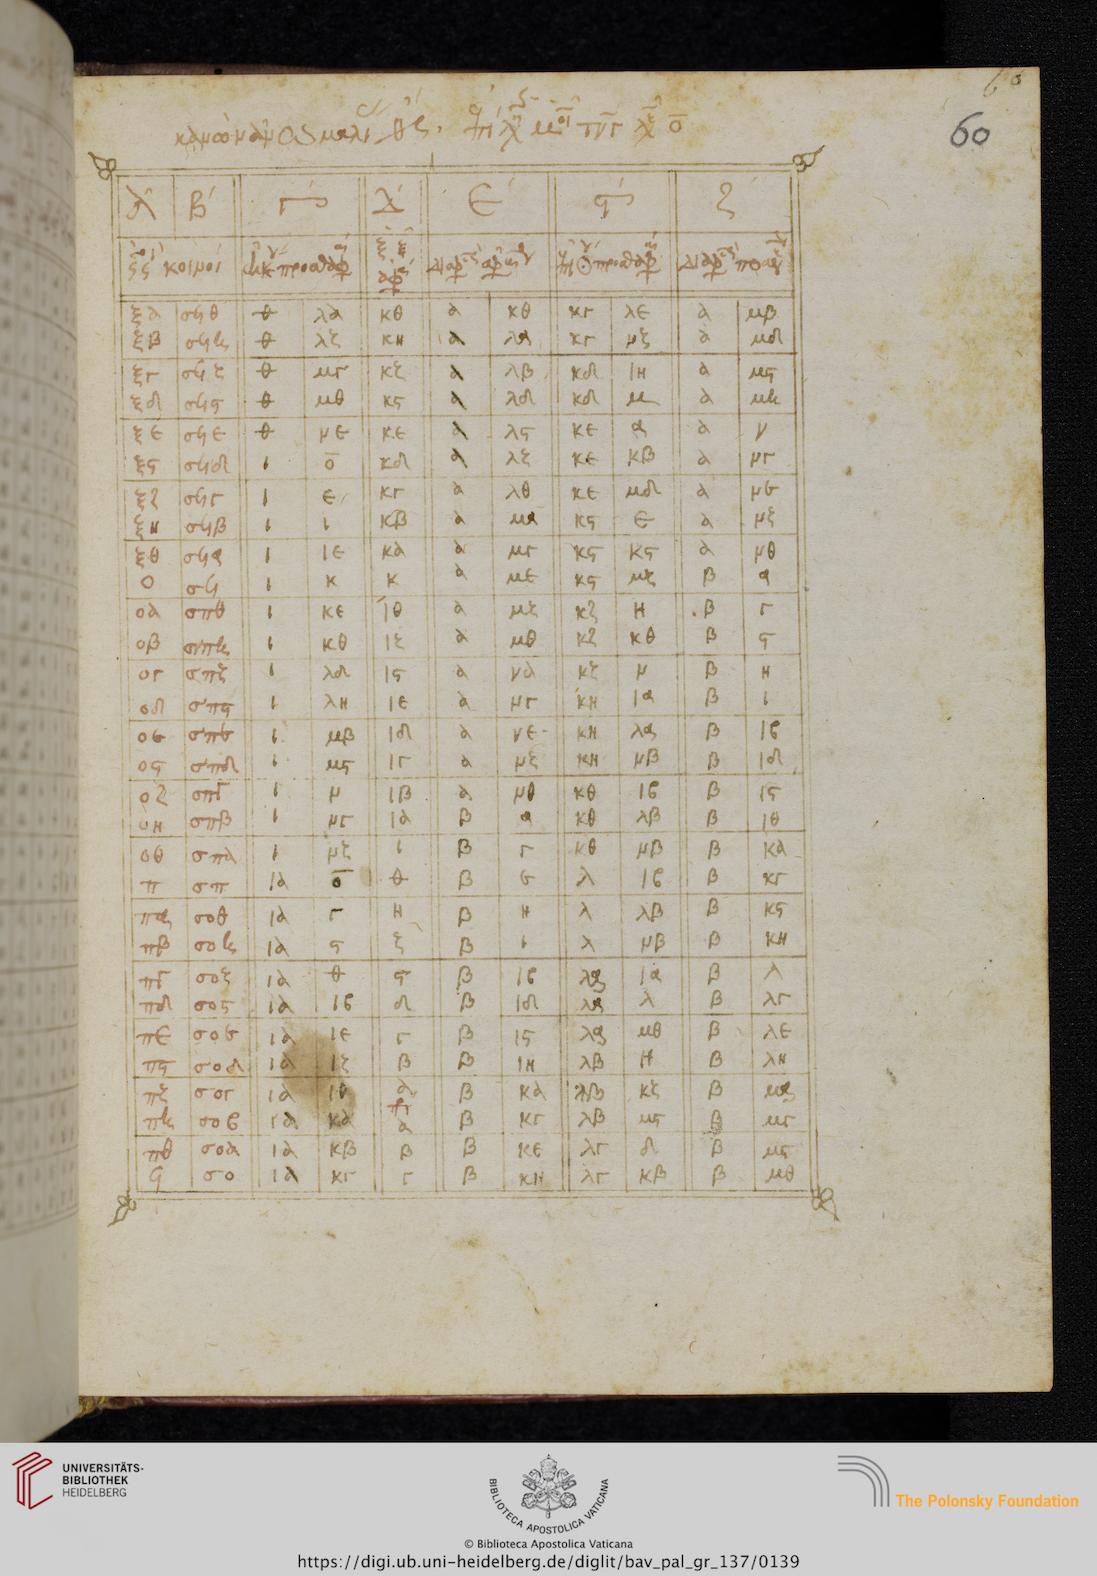 60
α β γ δ ε ϛ ζ
ξα σϟθ θ λα κθ α κθ κγ λε α μβ
ξβ σϟη θ λζ κη α λα κγ μζ α μδ
ξγ σϟζ θ μγ κζ α λβ κδ ιη α μϛ
ξδ σϟϛ θ μθ κϛ α λδ κδ μ α μη
ξε σϟε θ με κε α λϛ κε α α ν
ξϛ σϟδ ι ο κδ α λζ κε κβ α μγ
ξζ σϟγ ι ε κγ α λθ κε μδ α με
ξη σϟβ ι ι κβ α μα κϛ ε α μζ
ξθ σϟα ι ιε κα α μγ κϛ κϛ α μθ
ο σϟ ι κ κ α με κϛ μζ β α
οα σπθ ι κε ιθ α μζ κζ η β γ
οβ σπη ι κθ ιζ α μθ κζ κθ β ϛ
ογ σπζ ι λδ ιϛ α να κζ μ β η
οδ σπϛ ι λη ιε α μγ κη ια β ι
οε σπε ι μβ ιδ α νε κη λα β ιβ
οϛ σπδ ι μϛ ιγ α μζ κη μβ β ιδ
οζ σπγ ι μ ιβ α μθ κθ ιβ β ιϛ
οη σπβ ι μγ ια β α κθ λβ β ιθ
οθ σπα ι μζ ι β γ κθ μβ β κα
π σπ ια ο θ β ε λ ιβ β κγ
πα σοθ ια γ η β η λ λβ β κϛ
πβ σοη ια ϛ ζ β ι λ μβ β κη
πγ σοζ ια θ ϛ β ιβ λα ια β λ
πδ σοϛ ια ιβ δ β ιδ λα λ β λγ
πε σοε ια ιε γ β ιϛ λα μθ β λε
πϛ σοδ ια ιζ β β ιη λβ η β λη
πζ σογ ια ιθ α β κα λβ κζ β μα
πη σοβ ια κα α β κγ λβ μϛ β μγ
πθ σοα ια κβ β β κε λγ δ β μϛ
ϟ σο ια κγ γ β κη λγ κβ β μθ
UNIVERSITÄTS-
BIBLIOTHEK
HEIDELBERG
BIBLIOTECA APOSTOLICA VATICANA
The Polonsky Foundation
© Biblioteca Apostolica Vaticana
https://digi.ub.uni-heidelberg.de/diglit/bav_pal_gr_137/0139